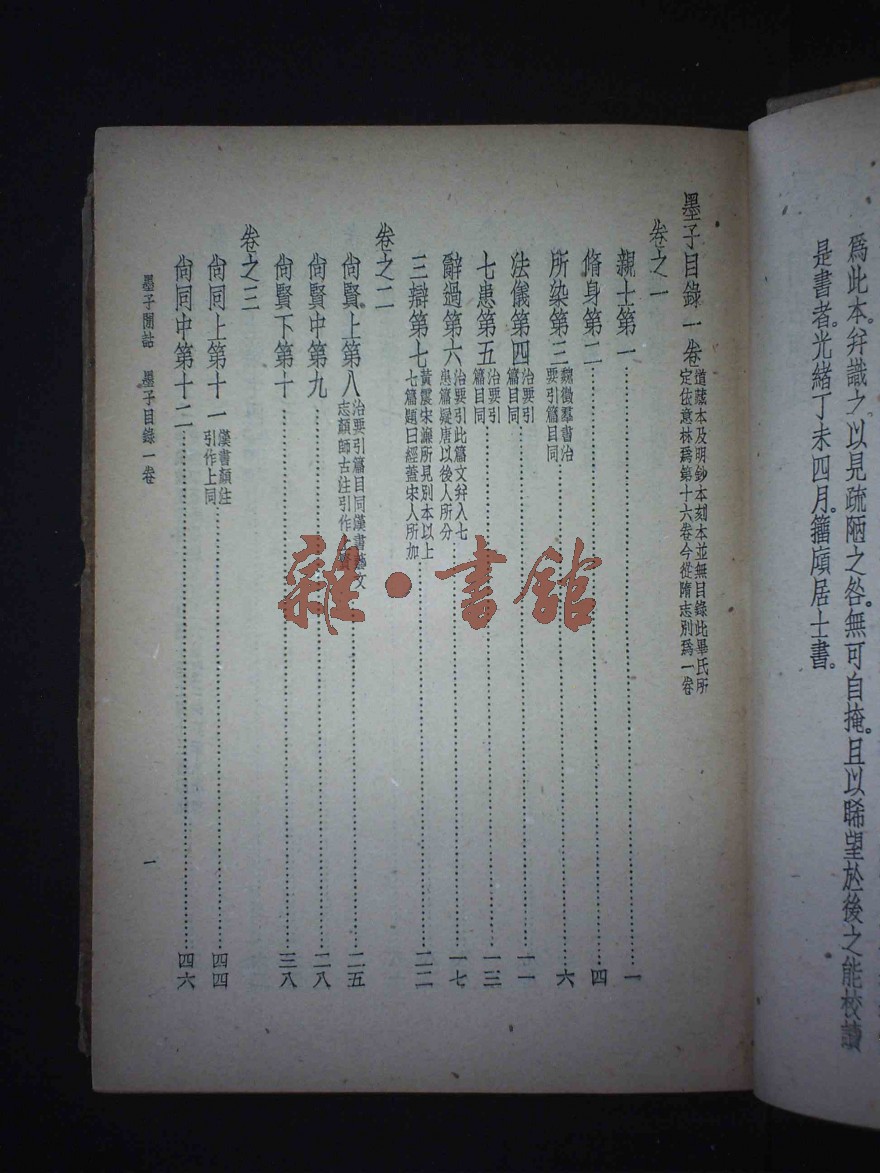 爲此本幷識之以見疏陋之咎。無可自掩。且以睎望於後之能校讀
是書者。光緒丁未四月。籀廎居士書。
墨子目錄一卷 道藏本及明鈔本刻本並無目錄此畢氏所
定依意林爲第十六卷今從隋志別爲一卷
卷之一
親士第一……一
脩身第二……四
所染第三 魏徵羣書治
要引篇目同……六
法儀第四 治要引
篇目同……一一
七患第五 治要引
篇目同……一三
辭過第六 治要引此篇文幷入七
患篇疑唐以後人所分……一七
三辯第七 黃震宋濂所見別本以上
七篇題曰經蓋宋人所加……二二
卷之二
尙賢上第八 治要引篇目同漢書藝文
志顏師古注引作上賢……二五
尙賢中第九……二八
尙賢下第十……三八
卷之三
尙同上第十一 漢書顏注
引作上同……四四
尙同中第十二……四六
墨子閒詁 墨子目錄一卷
一
雜·書館